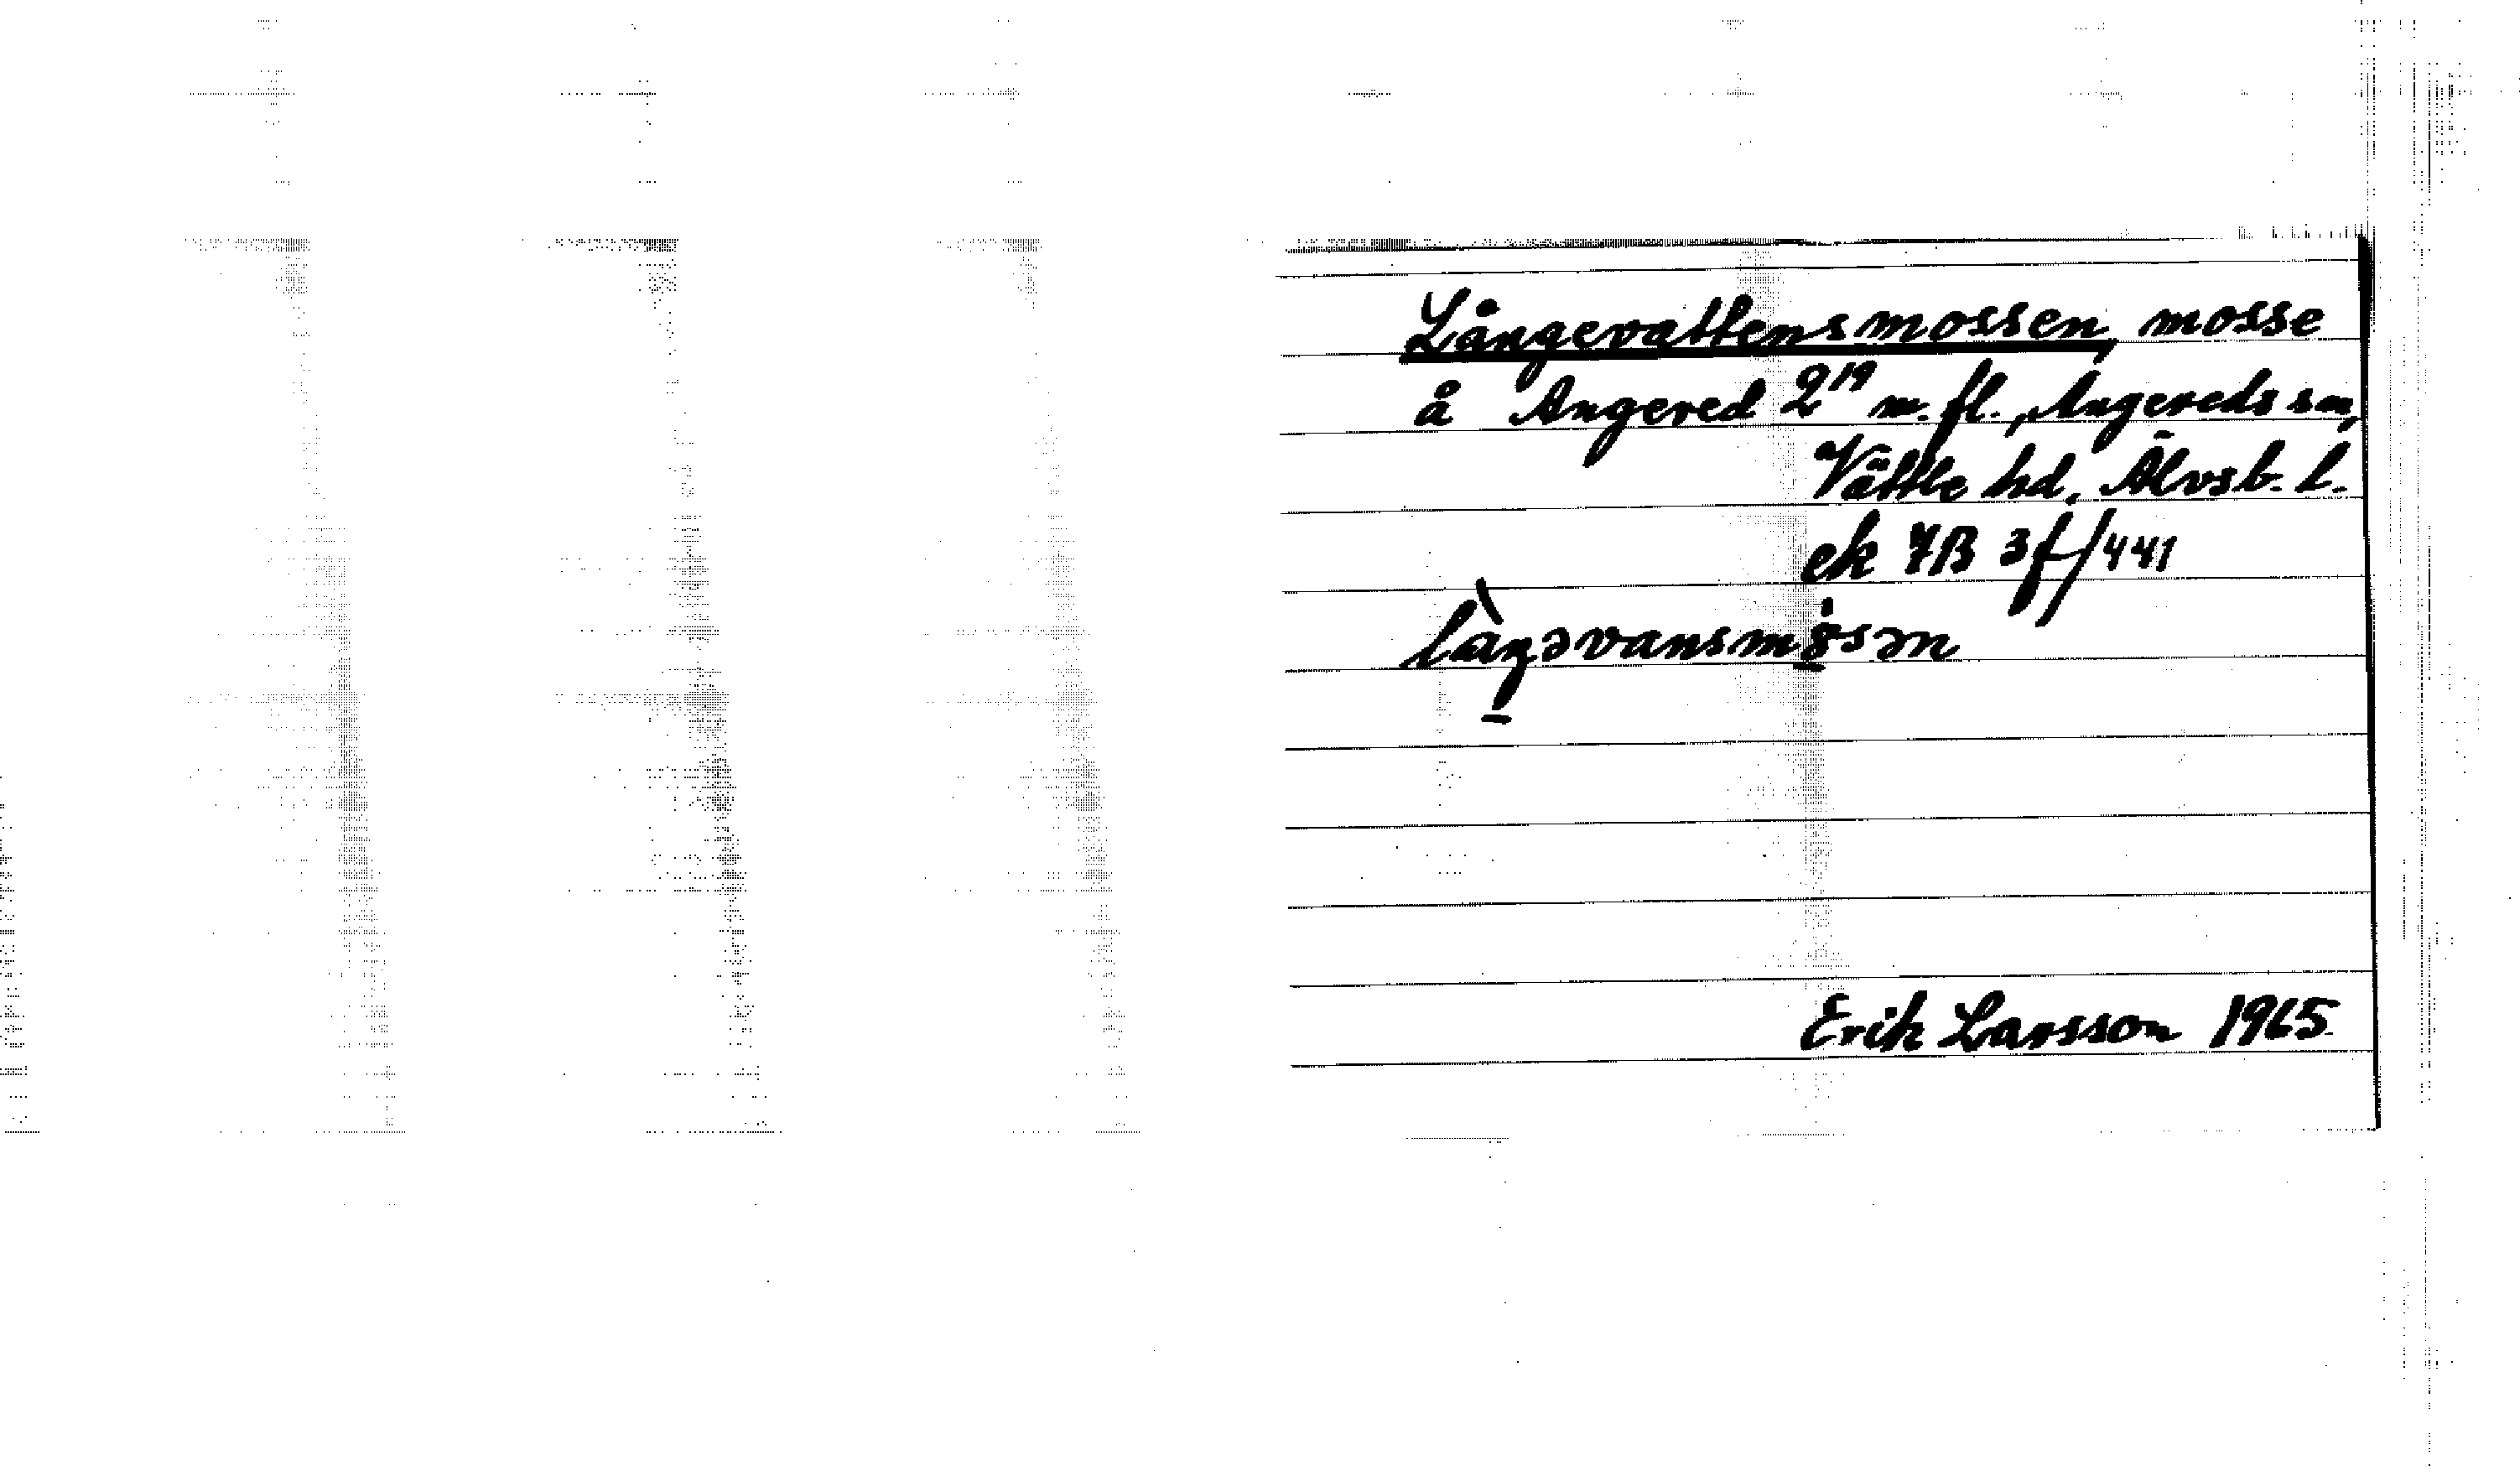 Långevattensmossen, mosse
å Angered 2¹⁹ m.fl., Angereds sn,
Vättle hd, Älvsb. l.
ek 7B 3f/441
Erik Larsson 1965